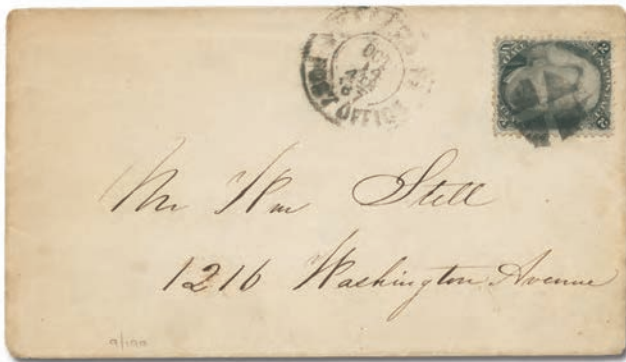 OCT
14
POST OFFICE
Mr Wm Still
1216 Washington Avenue